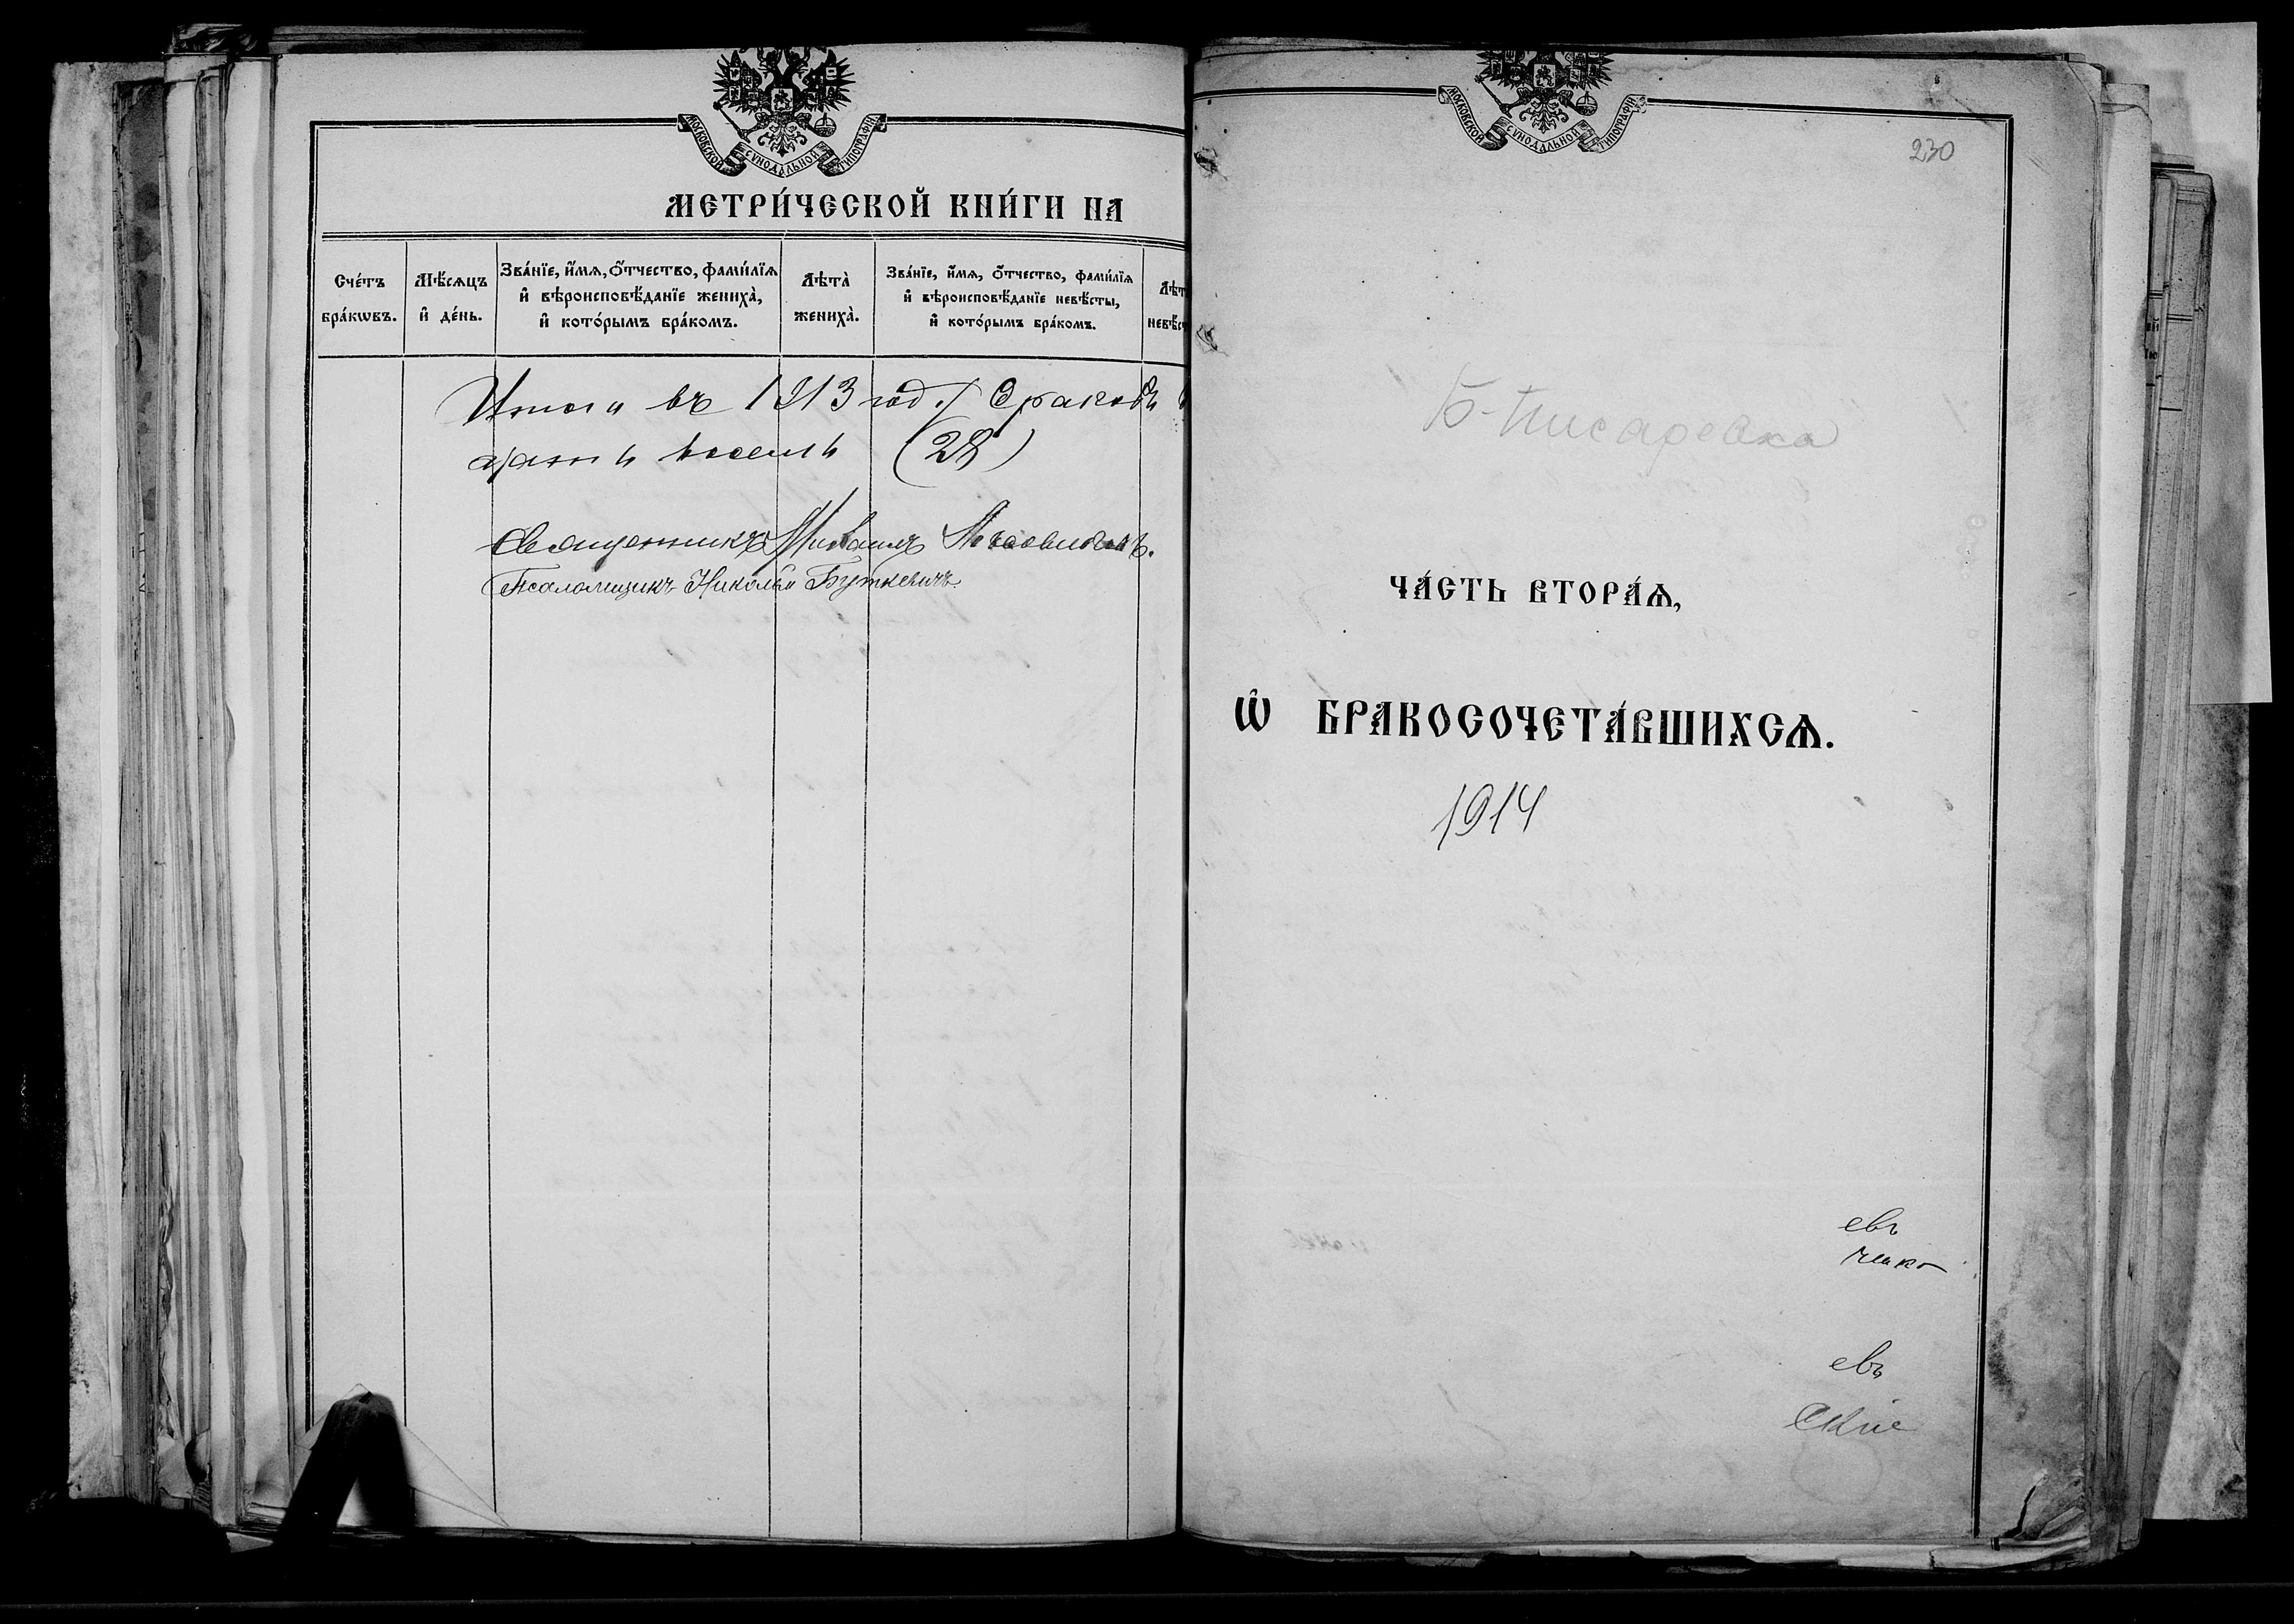 МОСКОВСКОЙ СѴНОДАЛЬНОЙ ТИПОГРАФІИ
МЕТРИ́ЧЕСКОЙ КНИ́ГИ НА
Сче́тъ бра́кѡвъ.
Мѣ́сѧцъ и҆ де́нь.
Зва́нїе, и҆́мѧ, ѻ҆́тчество, фами́лїѧ
и҆ вѣроисповѣ́данїе жениха̀,
и҆ кото́рымъ бра́комъ.
Лѣта̀ жениха̀.
Зва́нїе, и҆́мѧ, ѻ҆́тчество, фами́лїѧ
и҆ вѣроисповѣ́данїе невѣ́сты,
и҆ кото́рымъ бра́комъ.
Итого въ 1913 году браковъ
дцать восемь (28)
Священникъ Михаилъ
Псаломщикъ Николай Буткевичъ
МОСКОВСКОЙ СѴНОДАЛЬНОЙ ТИПОГРАФІИ
230
Б-Писаревка
ЧА́СТЬ ВТОРА́Ѧ,
Ѡ҆ БРАКОСОЧЕТА́ВШИХСѦ.
1914
евъ
ченко
евъ
скіе